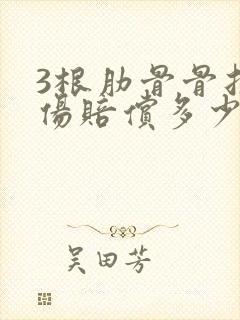 3根肋骨骨
伤赔偿多少
吴田芳